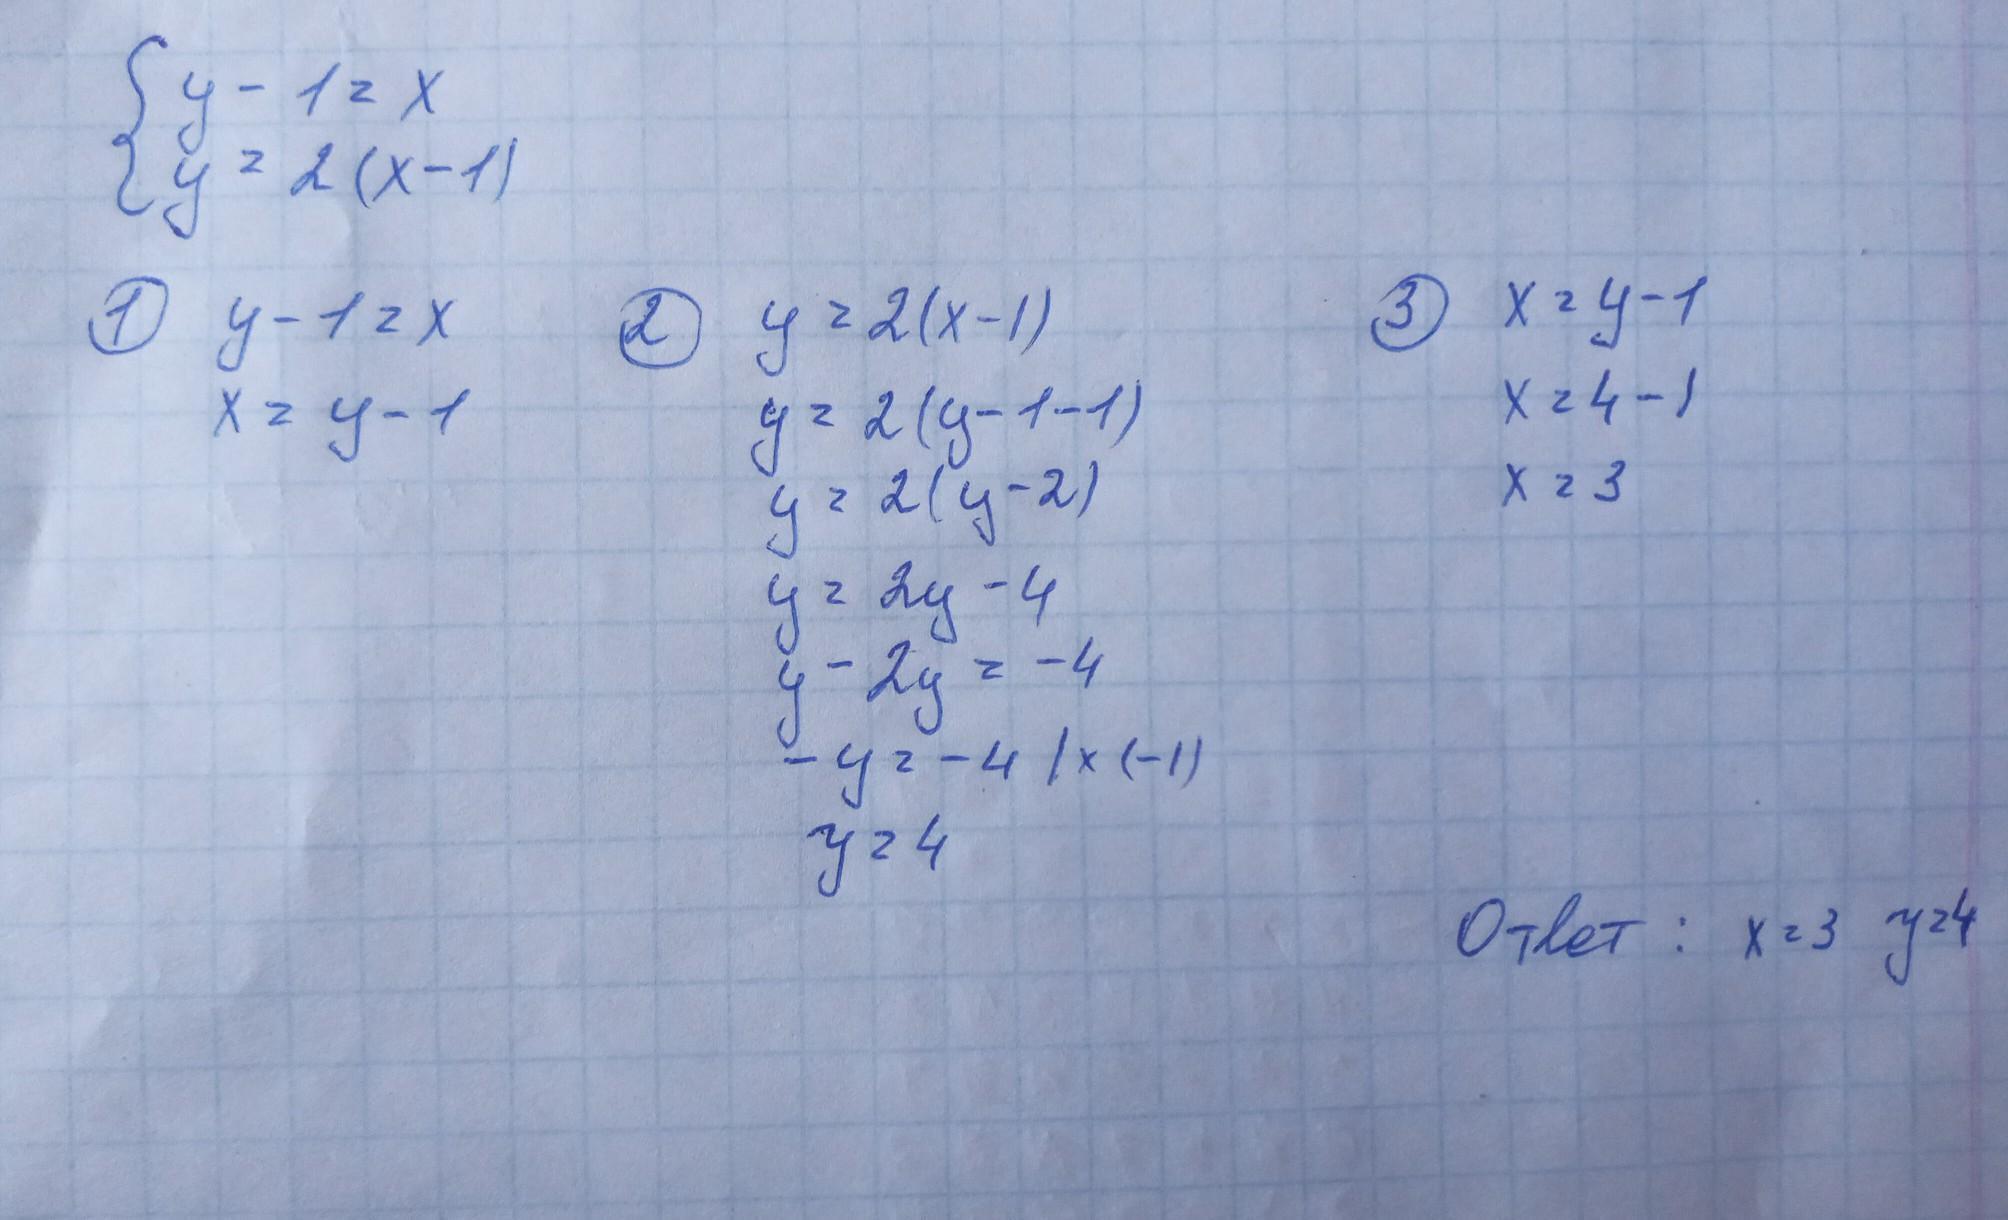 y - 1 = x
y = 2(x-1)
① y - 1 = x
x = y - 1
② y = 2(x-1)
y = 2(y-1-1)
y = 2(y-2)
y = 2y - 4
y - 2y = -4
-y = -4 | × (-1)
y = 4
③ x = y - 1
x = 4 - 1
x = 3
Ответ: x = 3 y = 4